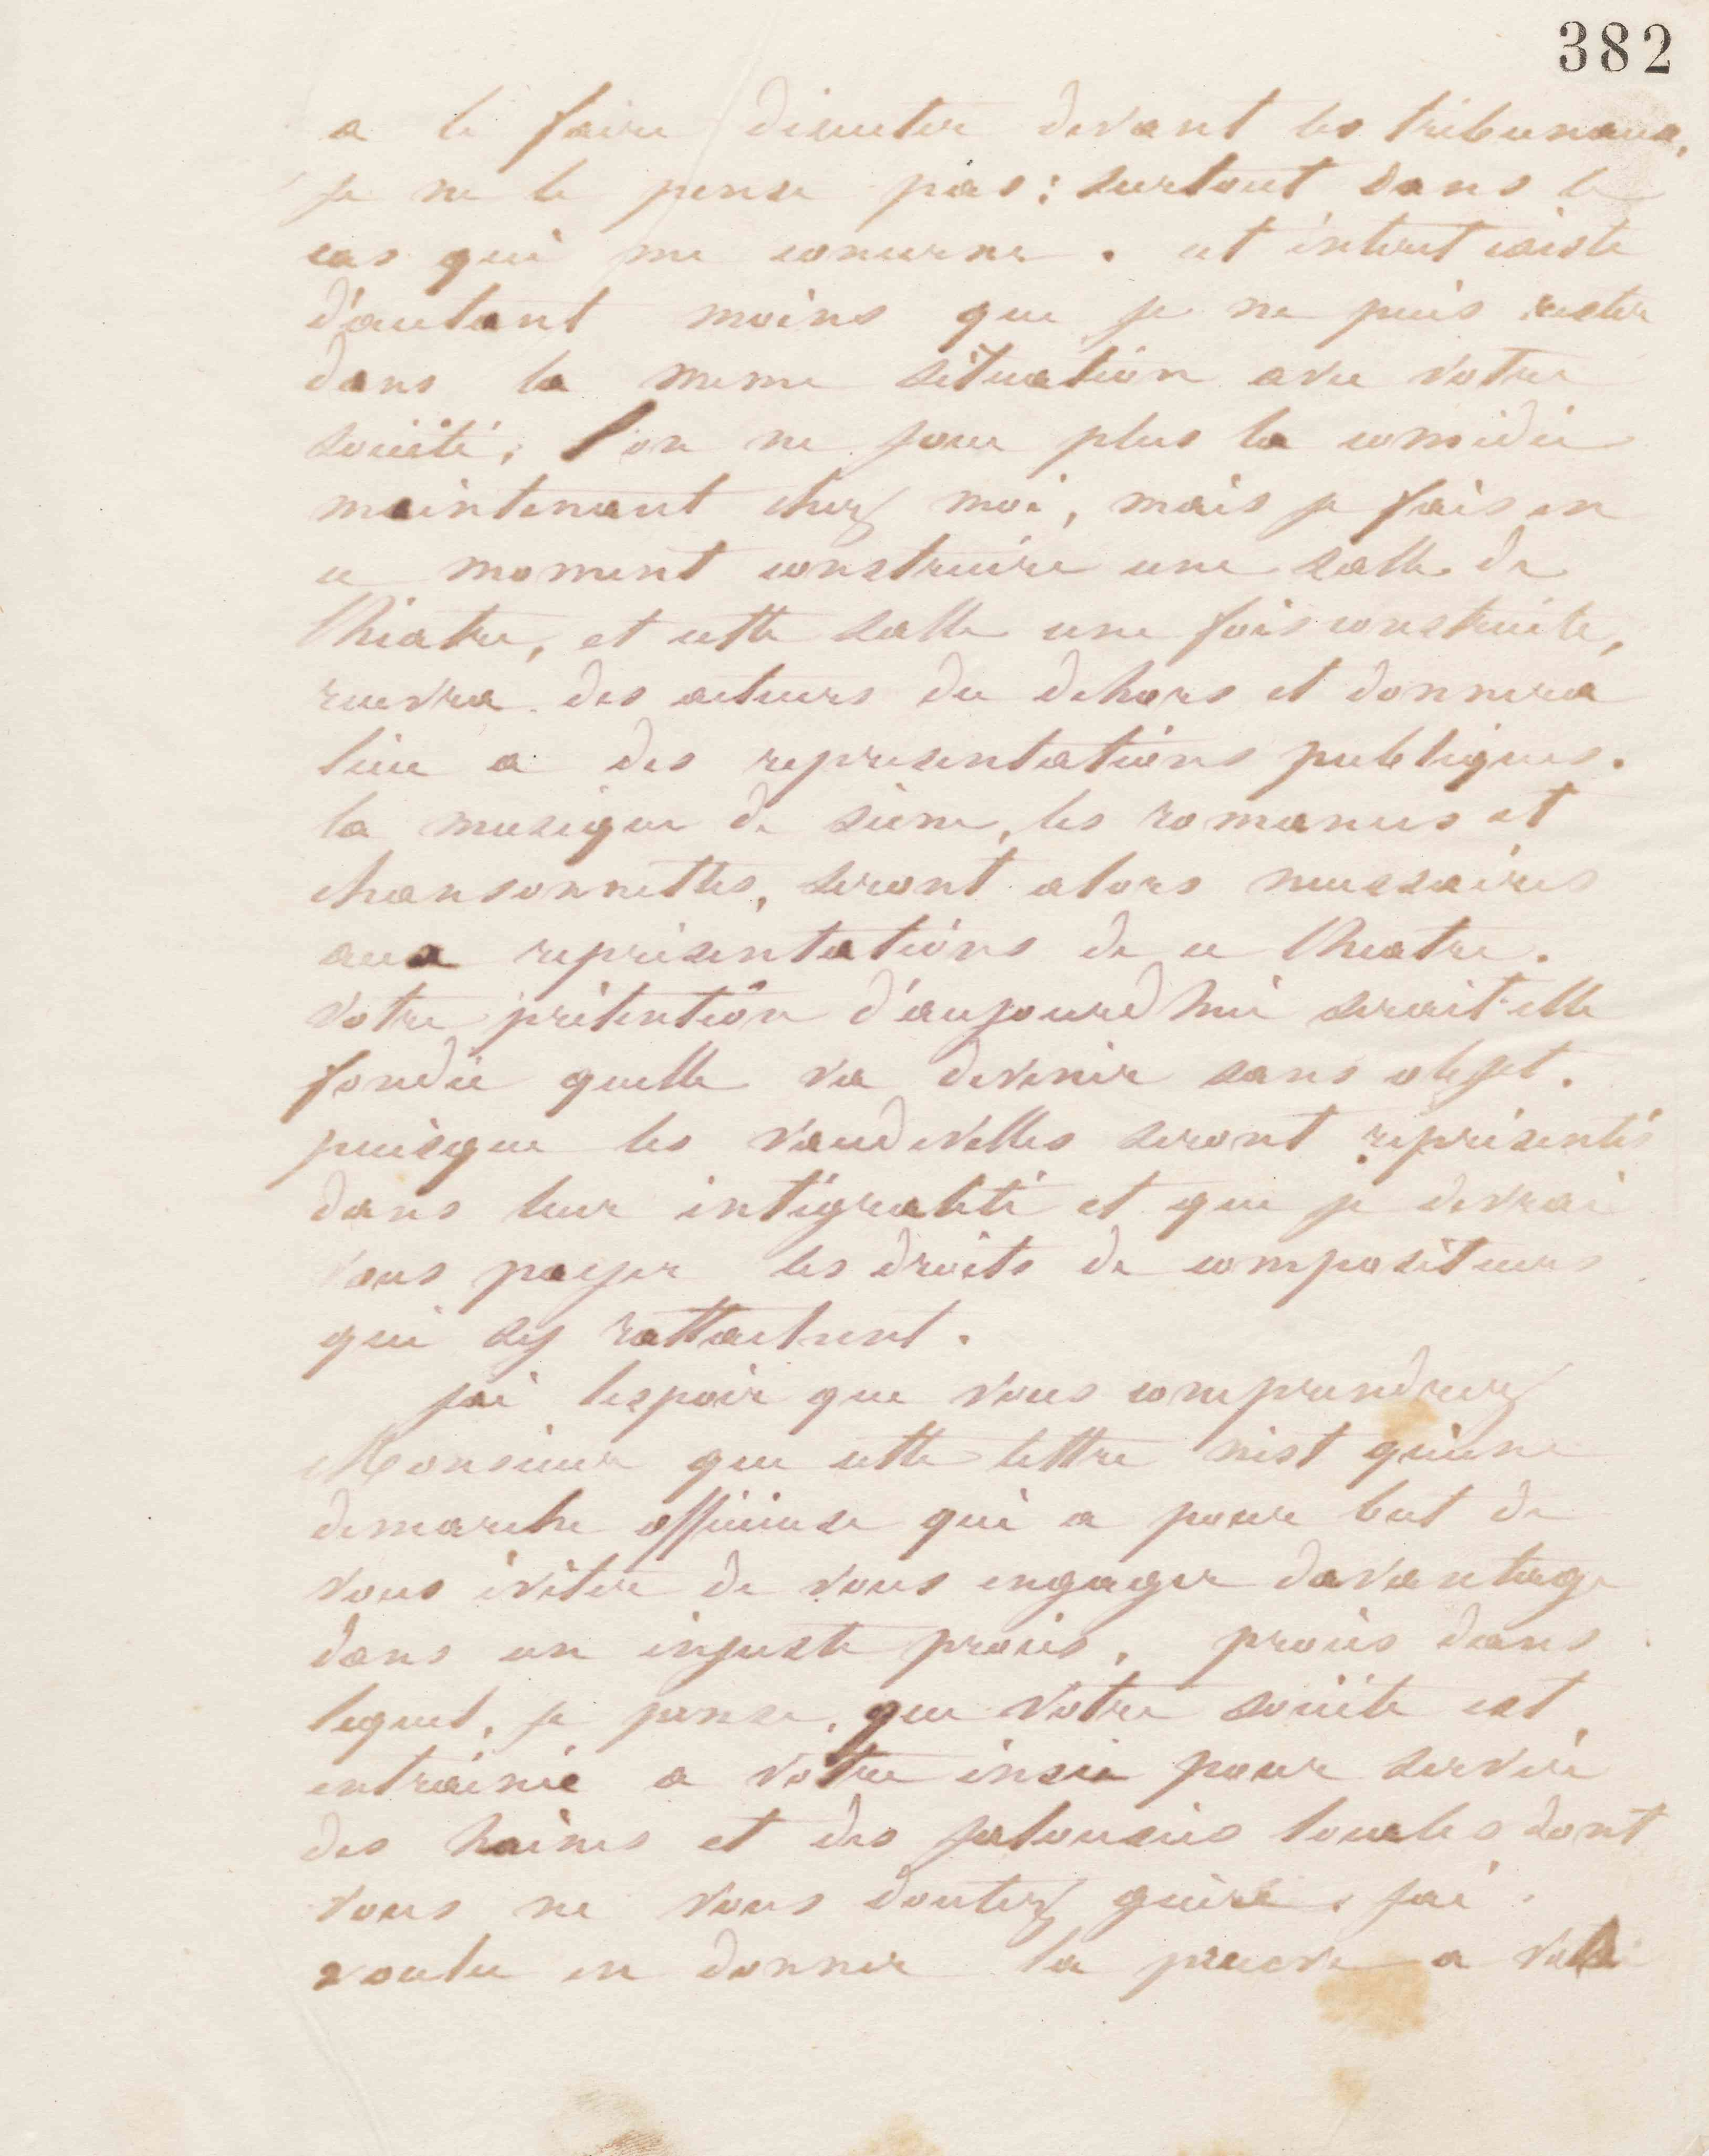 382
a le faire discuter devant les tribunaux,
je ne le pense pas : surtout dans le
cas qui me concerne . cet intéret existe
d'autant moins que je ne puis rester
dans la meme situation avec votre
société, l'on ne joue plus la comédie
maintenant chez moi, mais je fais en
ce moment construire une salle de
théatre, et cette salle une fois construite,
recevra des acteurs du dehors et donnera
lieu a des representations publiques.
la musique de scène, les romances et
chansonnettes, seront alors necessaires
aux représentations de ce theatre.
votre prétention d'aujourd'hui serait-elle
fondée quelle va devenir sans objet.
puisque les vaudevilles seront représentés
dans leur intégralité et que je devrai
vous payer les droits de compositeurs
qui s'y rattachent.
jai lespoir que vous comprendrez
Monsieur que cette lettre n'est qu'une
demarche officieuse qui a pour but de
vous éviter de vous engager davantage
dans un injuste procès, procès dans
lequel, je pense, que votre société est
entrainée a votre insu pour servir
des haines et des jalousies locales dont
vous ne vous doutez guère, jai
voulu en donner la preuve a votre